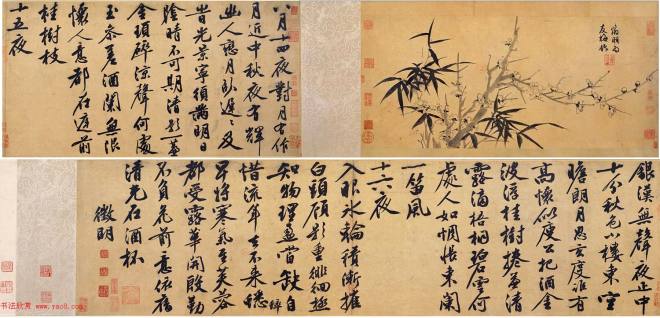 徵明為
友梅作
八月十四夜對月有作
月近中秋夜有輝
幽人戀月臥遲遲及
旹光景寧須滿明日
陰晴不可期清影一簾
金瑣碎涼聲何處
玉參差酒闌無限
懷人意都在庭前
桂樹枝
十五夜
銀漢無聲夜正中
十分秋色小樓東空
瞻朗月思玄度誰有
高懷似庾公把酒金
波浮桂樹捲簾清
露滴梧桐碧雲何
處人如惆悵東闌
一笛風
十六夜
入眼冰輪積漸摧
白頭顧影重徘徊極
知物理盈當缺自
惜流年去不來
早將寒氣至芙蓉
都受露華開殷勤
不負尊前意依舊
清光在酒杯
徵明
书法欣赏
www.yac8.com